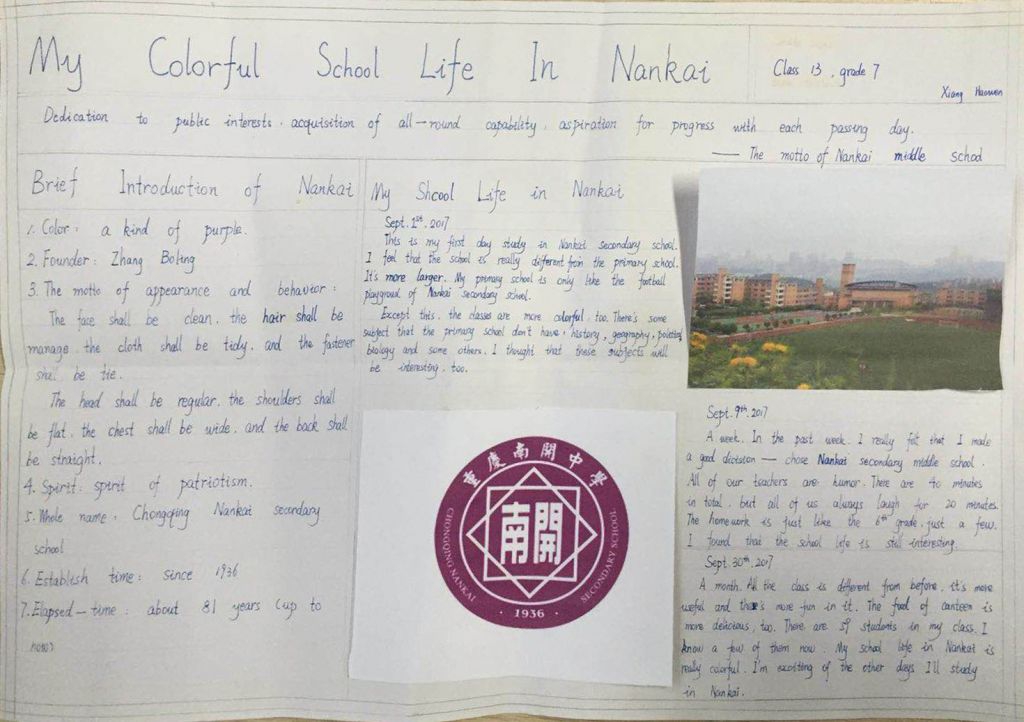 My Colorful School Life In Nankai
Class 13, grade 7
Xiang Haowen
Dedication to public interests, acquisition of all-round capability, aspiration for progress with each passing day.
— The motto of Nankai middle school
Brief Introduction of Nankai
1. Color: a kind of purple.
2. Founder: Zhang Boling
3. The motto of appearance and behavior:
The face shall be clean, the hair shall be
manage, the cloth shall be tidy, and the fastener
shall be tie.
The head shall be regular, the shoulders shall
be flat, the chest shall be wide, and the back shall
be straight.
4. Spirit: spirit of patriotism.
5. Whole name: Chongqing Nankai secondary
school
6. Establish time: since 1936
7. Elapsed-time: about 81 years (up to
now)
My Shcool Life in Nankai
Sept. 1st, 2017
This is my first day study in Nankai secondary school.
I feel that the school is really different from the primary school.
It's more larger. My primary school is only like the football
playground of Nankai secondary school.
Except this, the classes are more colorful, too. There's some
subject that the primary school don't have, history, geography,
biology and some others. I thought that these subjects will
be interesting, too.
重慶南開中學
南開
CHONGQING NANKAI SECONDARY SCHOOL
· 1936 ·
Sept. 9th, 2017
A week. In the past week, I really felt that I made
a good dicision — chose Nankai secondary middle school.
All of our teachers are humor. There are 40 minutes
in total, but all of us always laugh for 20 minutes.
The homework is just like the 6th grade, just a few.
I found that the school life is still interesting.
Sept. 30th, 2017
A month. All the class is different from before, it's more
useful and there's more fun in it. The food of canteen is
more delicious, too. There are 59 students in my class. I
know a few of them now. My school life in Nankai is
really colorful. I'm exciting of the other days I'll study
in Nankai.